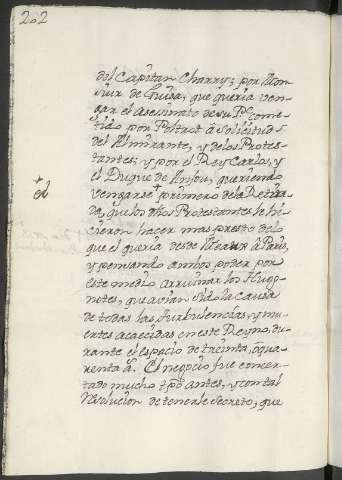 202
del Capitan Charry; por Mon
siur de Guisa, que queria ven-
gar el asesinato de su Pe. come-
tido por Poltrot à solicitud
del Almirante, y de los Protes-
tantes; y por el Rey Carlos, y
el Duque de Anjou, queriendo
+ el
vengarse + primero de la Retira
da, que los dhos Protestantes le hi-
cieron hacer mas presto de lo
que el queria desde Meaux à Paris,
y pensando ambos poder por
este medio arruinar los Hugo-
notes, que avian sido la causa
de todas las turbulencias, y mu-
ertes acaecidas en este Reyno, du-
rante el espacio de treinta, ò qua-
renta a. El negocio fue concer-
tado mucho tpo antes, y con tal
resolucion de tenerle secreto, que